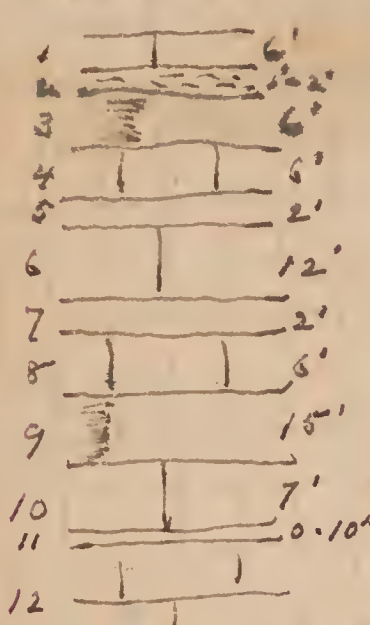 1 6'
2 1'-2'
3 6'
4 6'
5 2'
6 12'
7 2'
8 6'
9 15'
10 7'
11 0-10"
12